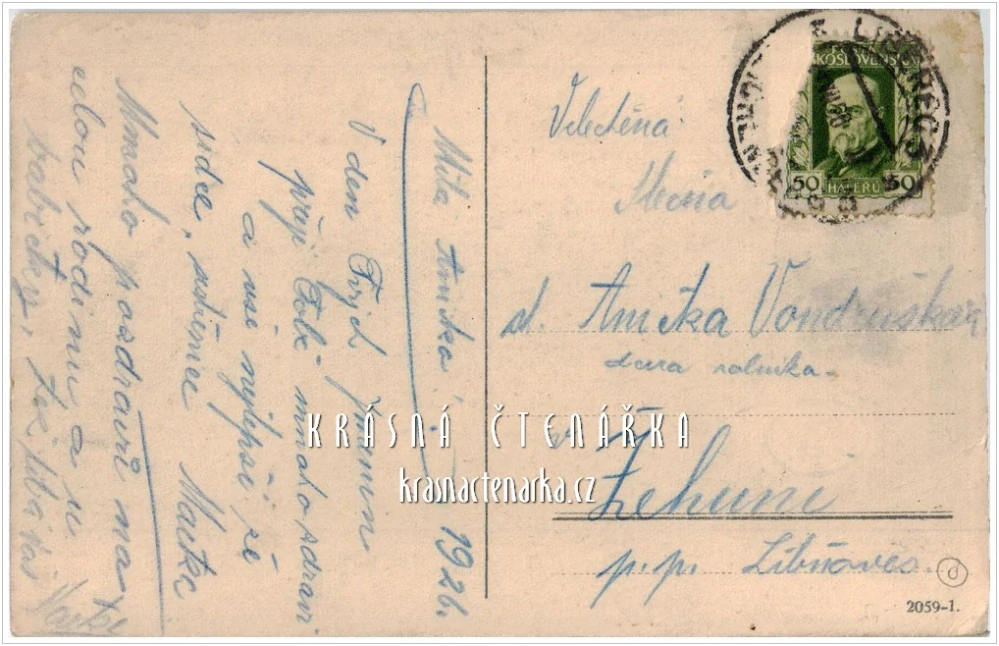 Milá Aničko! 1926.
V den Tvých jmenin
přeji Tobě mnoho zdraví
a vše nejlepší ze
srdce, Mařka
Mnoho pozdravů na
celou rodinu a na
babičku,
Velectěná
slečna
sl. Anička Vondrušková
dcera rolníka
v Žehuni
p. p. Libňoves.
2059-1.
ČESKOSLOVENSKO
50 HALÉŘŮ 50
LIBEREC 3
KRÁSNÁ ČTENÁŘKA
krasnactenarka.cz